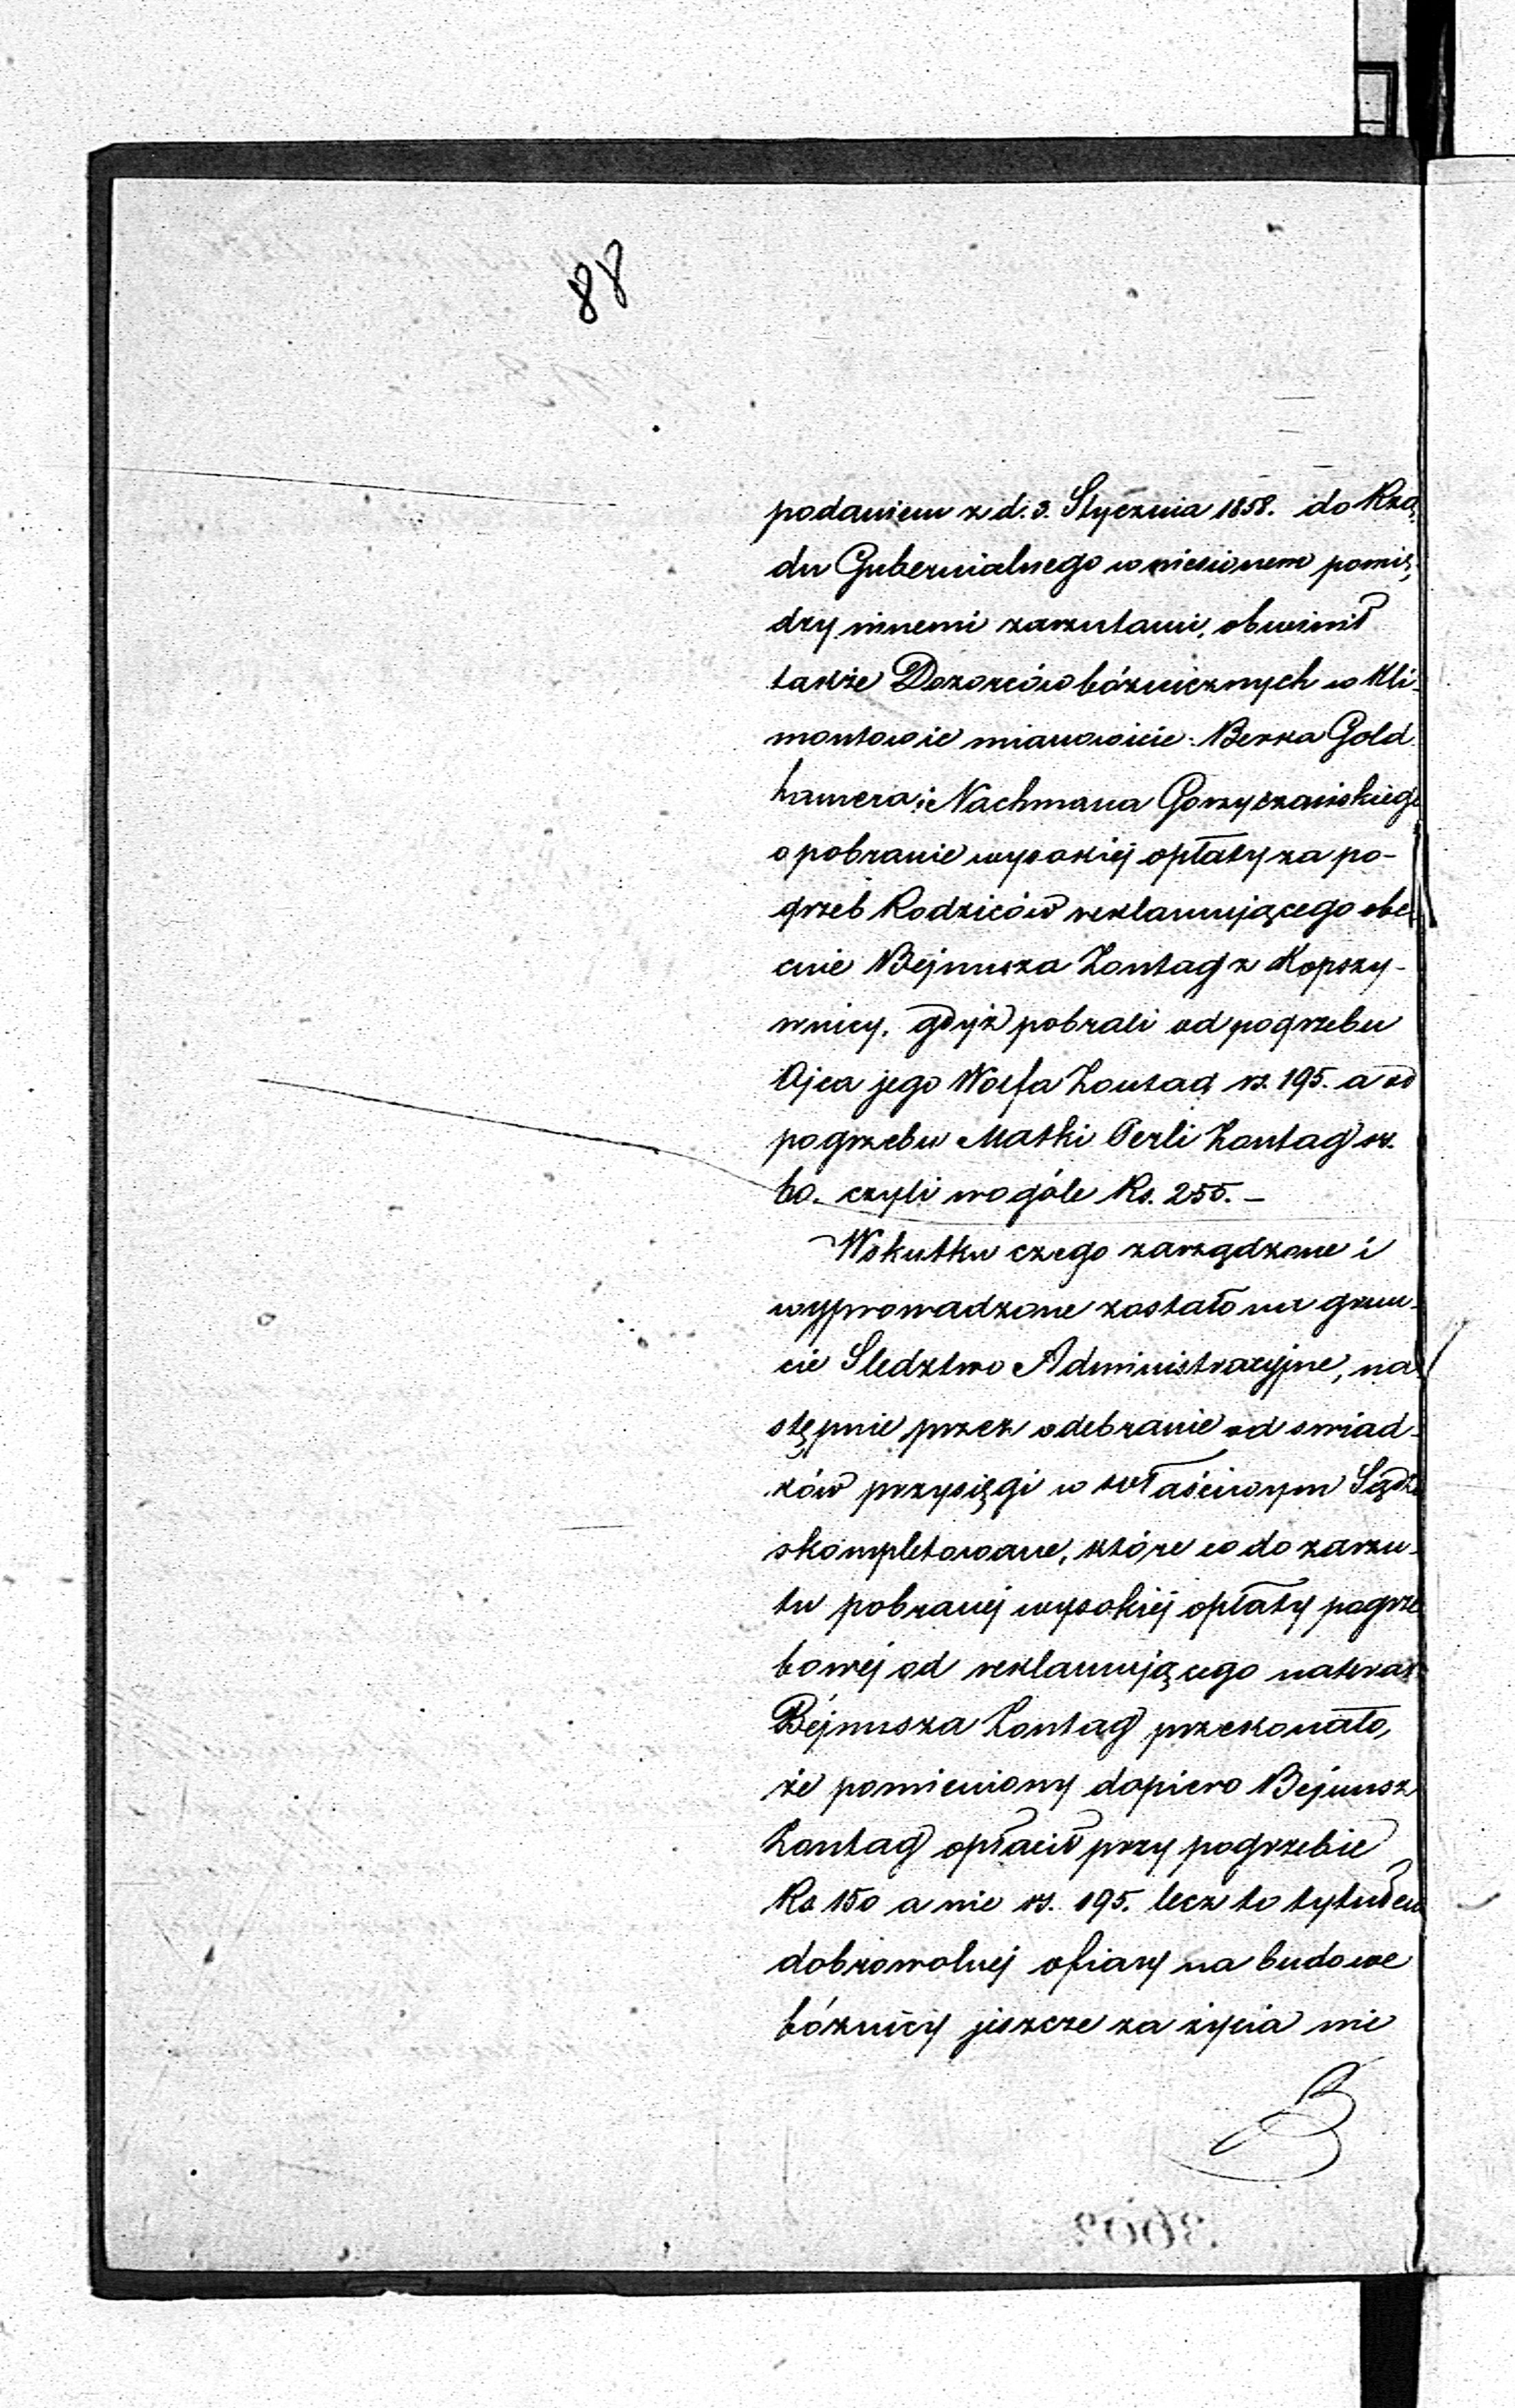 88
podaniem z d. 3. Stycznia 1858. do Rzą
du Gubernialnego wniesionem pomię
dzy innemi zarzutami, obwinił
także Dozorców bóżnicznych w Kli-
montowie mianowicie: Berka Gold
hamera i Nachmana Gorzyczańskiego
o pobranie wysokiéj opłaty za po-
grzeb Rodziców reklamującego obe
cnie Bejnusza Zontag z Koprzy-
wnicy, gdyż pobrali od pogrzebu
Ojca jego Wolfa Zontag rs. 195. a od
pogrzebu Matki Perli Zontag rs.
60. czyli wogóle Rs. 255. –
Wskutku czego zarządzone i
wyprowadzone zostało na grun-
cie Sledztwo Administracyjne, na
stępnie przez odebranie od swiad-
ków przysięgi w właściwym Sądzie
skompletowane, które co do zarzu-
tu pobranéj wysokiéj opłaty pogrze
bowéj od reklamującego na teraz
Bejnusza Zontag przekonało,
że pomieniony dopiero Bejnusz
Zontag opłacił przy pogrzebie
Rs 150 a nie rs. 195. lecz to tytułem
dobrowolnéj ofiary na budowe
bóżnicy jeszcze za życia nie
3602